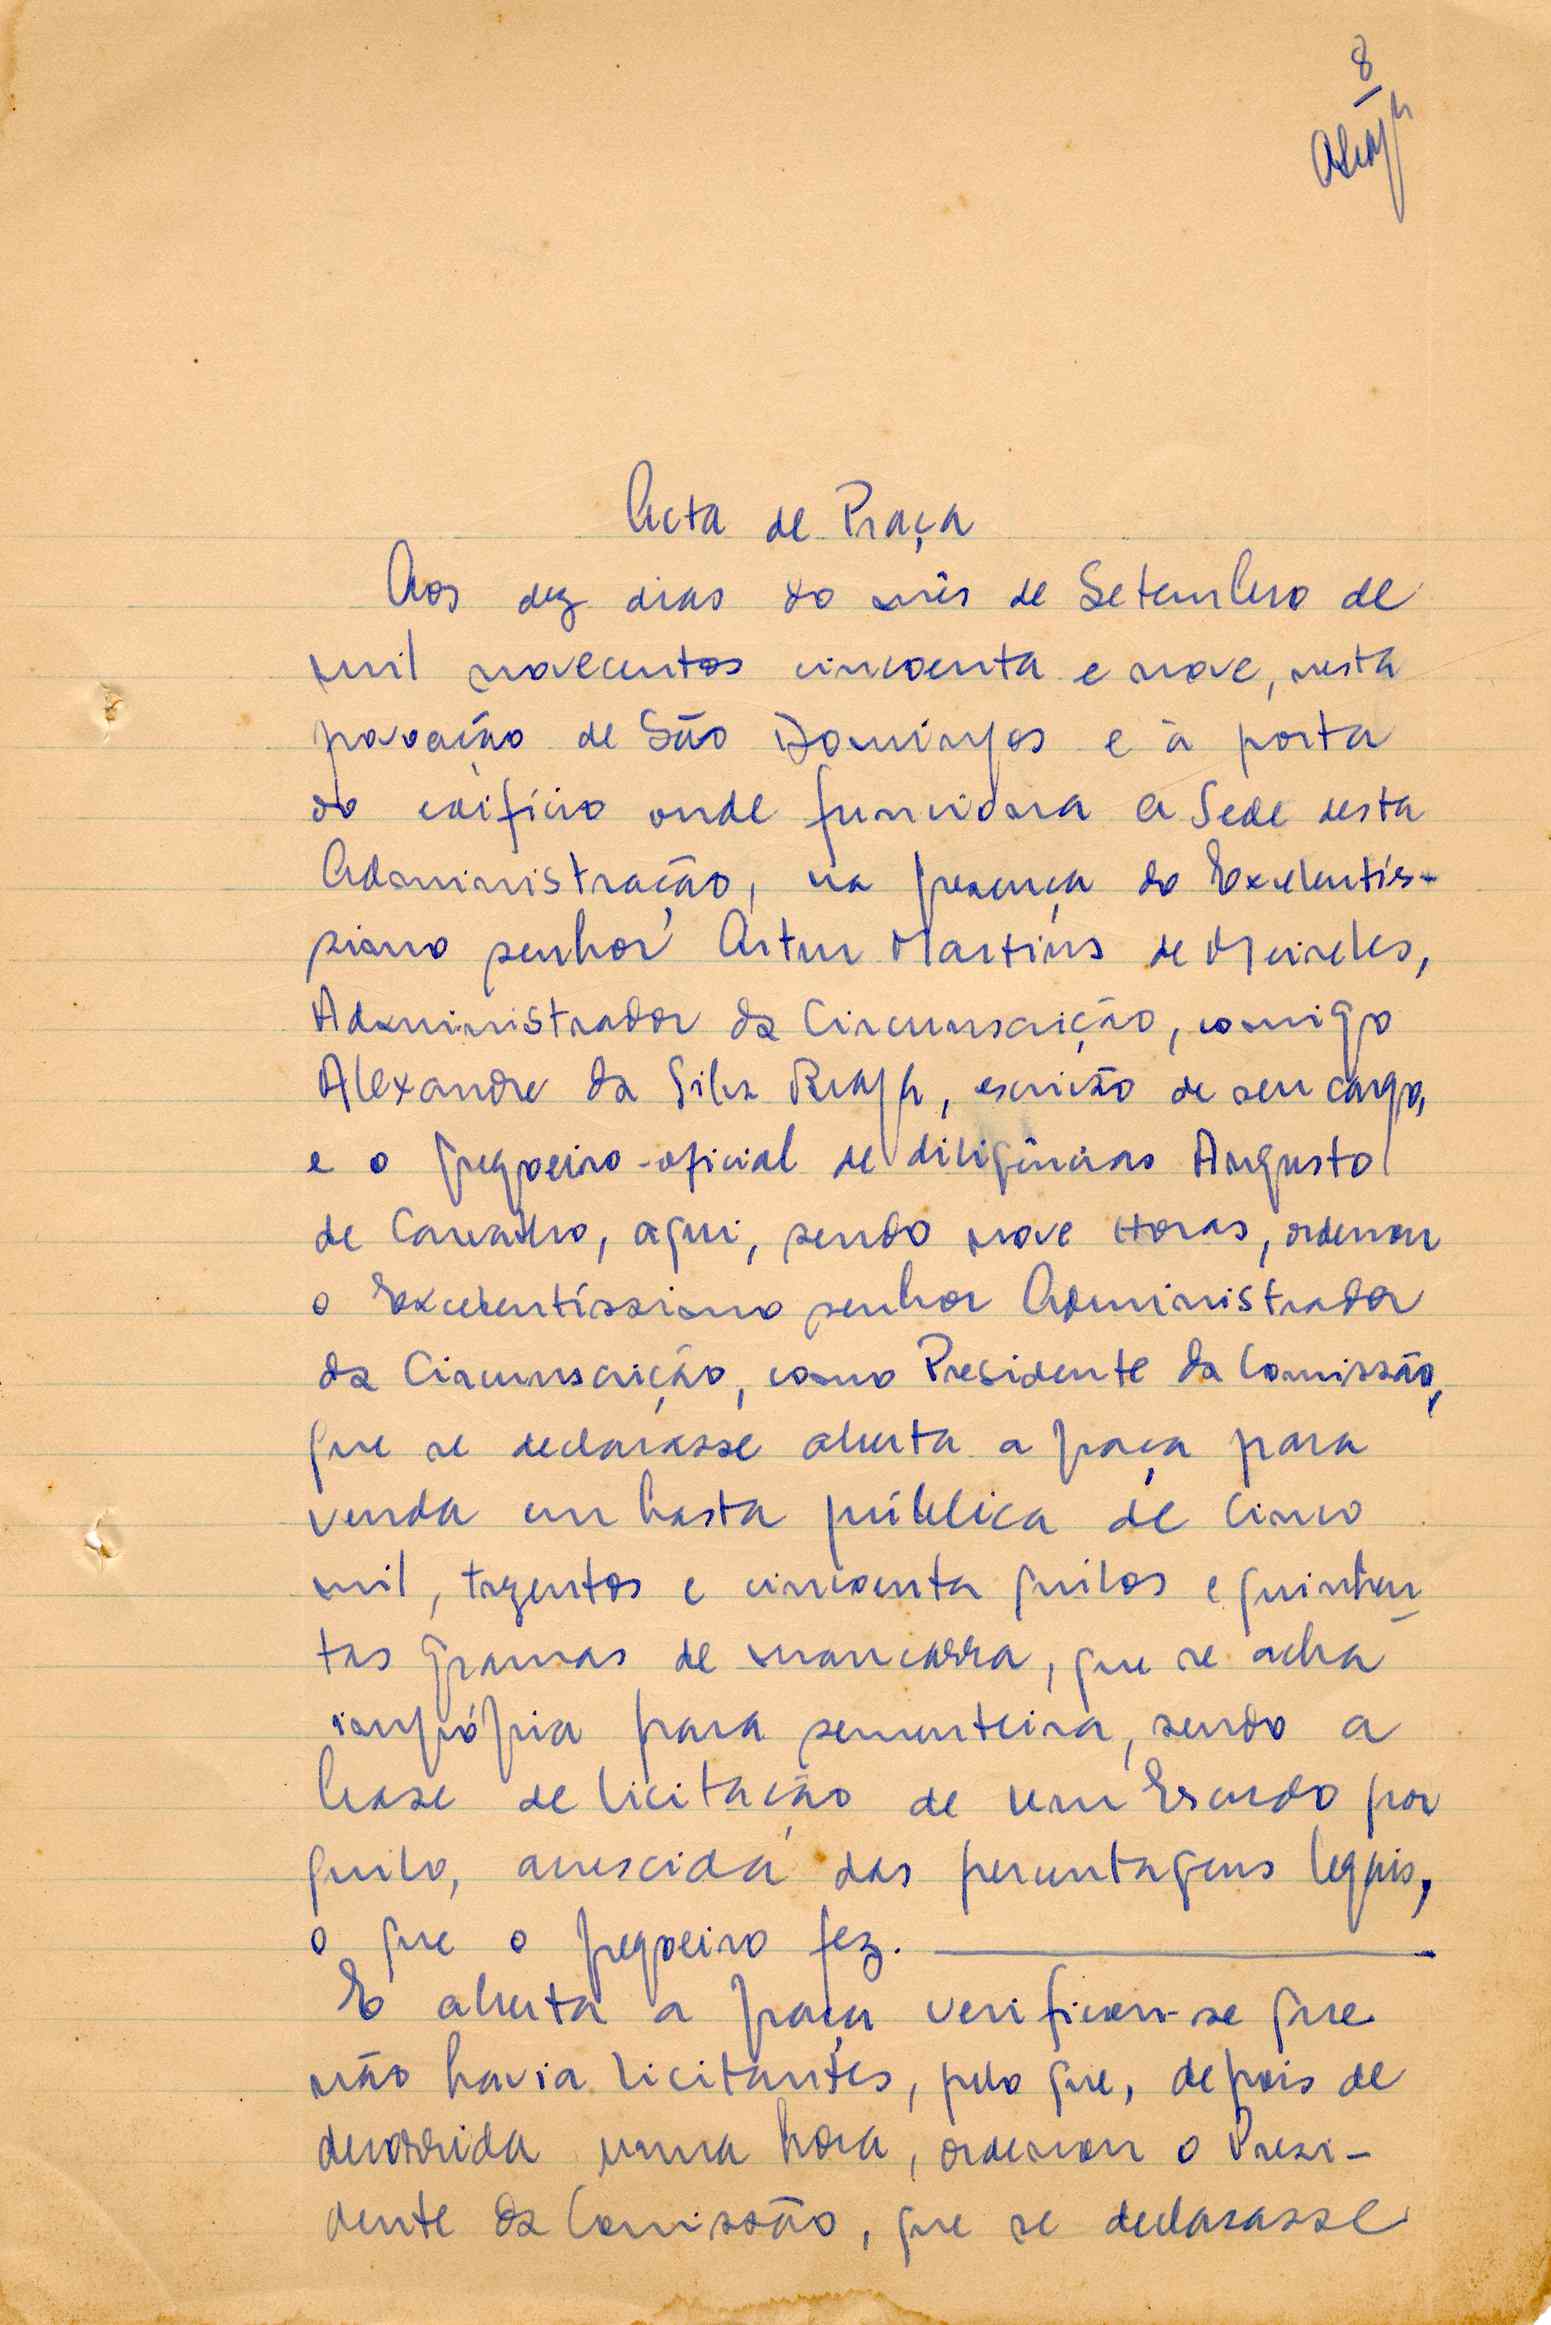 8
Acta de Praça
Aos dez dias do mês de Setembro de
mil novecentos cincoenta e nove, nesta
povoação de São Domingos e à porta
do edifício onde funciona a Sede desta
Administração, na presença do Excelentís-
simo senhor Artur Martins de Meireles,
Administrador da Circunscrição, comigo
Alexandre da Silva Braga, escrivão de seu cargo,
e o pregoeiro-oficial de diligências Augusto
de Carvalho, aqui, sendo nove horas, ordenou
o Excelentíssimo senhor Administrador
da Circunscrição, como Presidente da Comissão,
que se declarasse aberta a praça para
venda em hasta pública de cinco
mil, trezentos e cincoenta quilos e quinhen
tas gramas de mancarra, que se acha
imprópria para sementeira, sendo a
base de licitação de um Escudo por
quilo, acrescida das percentagens legais,
o que o pregoeiro fez.
E aberta a praça verificou-se que
não havia licitantes, pelo que, depois de
decorrida uma hora, ordenou o Presi-
dente da Comissão, que se declarasse